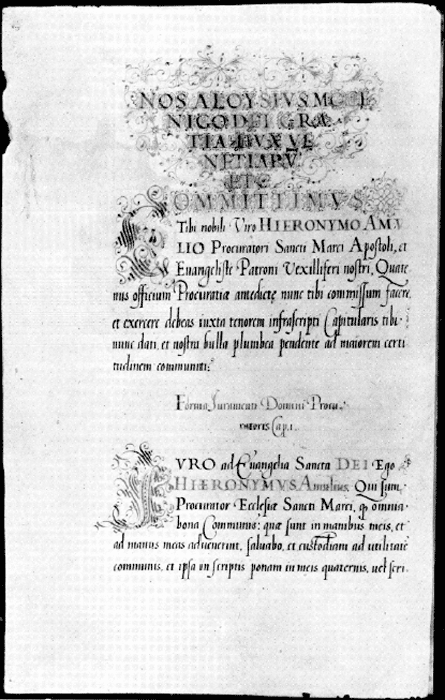 NOS ALOYSIVS MOCE
NIGO DEI GRA
TIA DVX VE
NETIARV̄
ETC
COMMITTIMVS
Tibi nobili Viro HIERONYMO AMV
LIO Procuratori Sancti Marci Apostoli, et
Euangeliste Patroni Vexilliferi nostri, Quate
nus officium Procuratiæ antedictę nunc tibi commissum facere,
et exercere debeas iuxta tenorem infrascripti Capitularis tibi
nunc dari, et nostri bulla plumbea pendente ad maiorem certi
tudinem communiri:
Forma Iuramenti Domini Procu
ratoris Cap. i.
IVRO ad Euangelia Sancta DEI Ego
HIERONYMVS Amulius, Qui sum
Procurator Ecclesiæ Sancti Marci, q̄ omnia
bona Communis: quæ sunt in manibus meis, et
ad manus meas aduenerint, saluabo, et custodiam ad utilitatē
communis, et ipsa in scriptis ponam in meis quaternis, uel scri